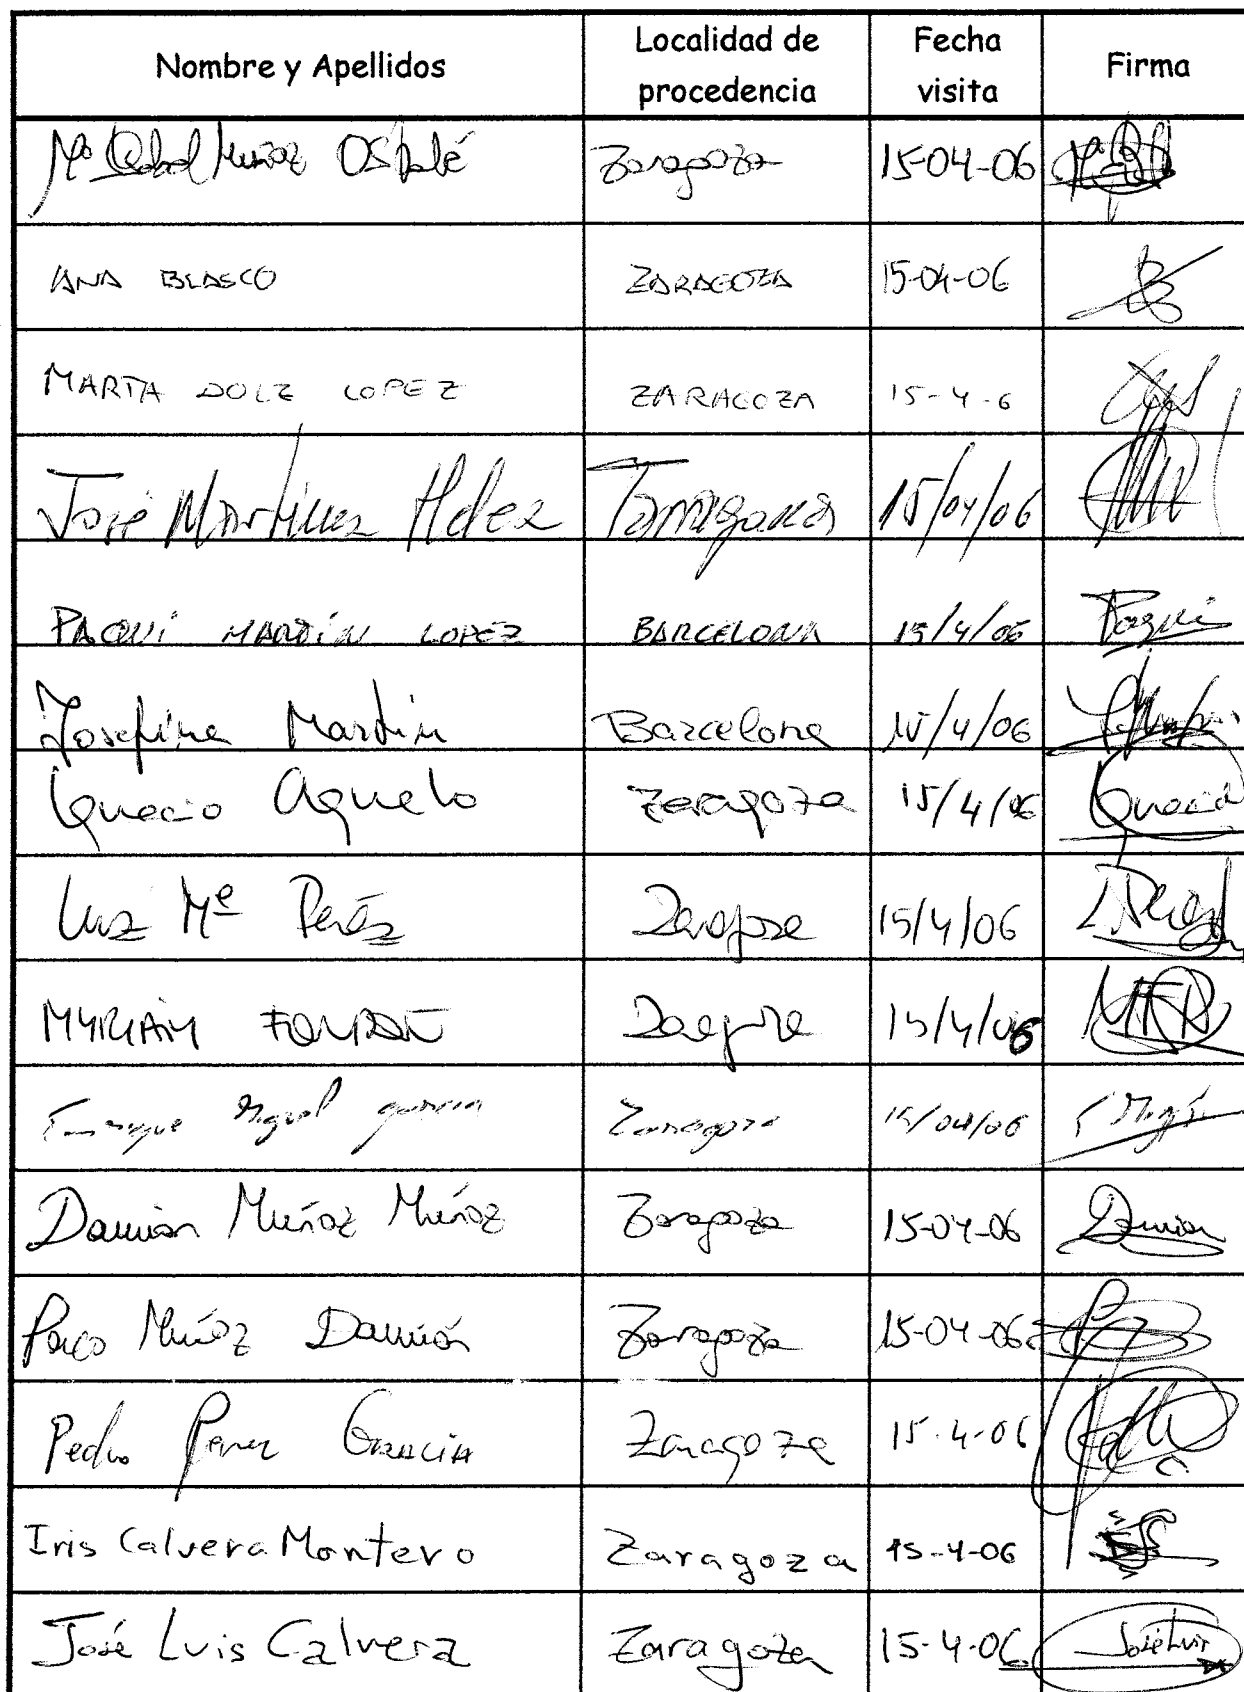 Nombre y Apellidos Localidad de procedencia Fecha visita Firma
Mª Muñoz Zaragoza 15-04-06
ANA BLASCO ZARAGOZA 15-04-06
MARTA DOLZ LOPEZ ZARAGOZA 15-4-6
José Martinez Hdez Tarragona 15/04/06
PAQUI MARTÍN LOPEZ BARCELONA 15/4/06 Paqui
Josefina Martin Barcelona 15/4/06
Ignacio Aguelo Zaragoza 15/4/06 Ignacio
Luz Mª Peréz Zaragoza 15/4/06 L. Perez
MYRIAM Zaragoza 15/4/06
Enrique Miguel garcia Zaragoza 15/04/06
Damián Muñoz Muñoz Zaragoza 15-04-06 Damian
Paco Muñoz Damián Zaragoza 15-04-06
Pedro Perez GARCIA Zaragoza 15-4-06
Iris Calvera Montero Zaragoza 15-4-06
José Luis Calvera Zaragoza 15-4-06 José Luis